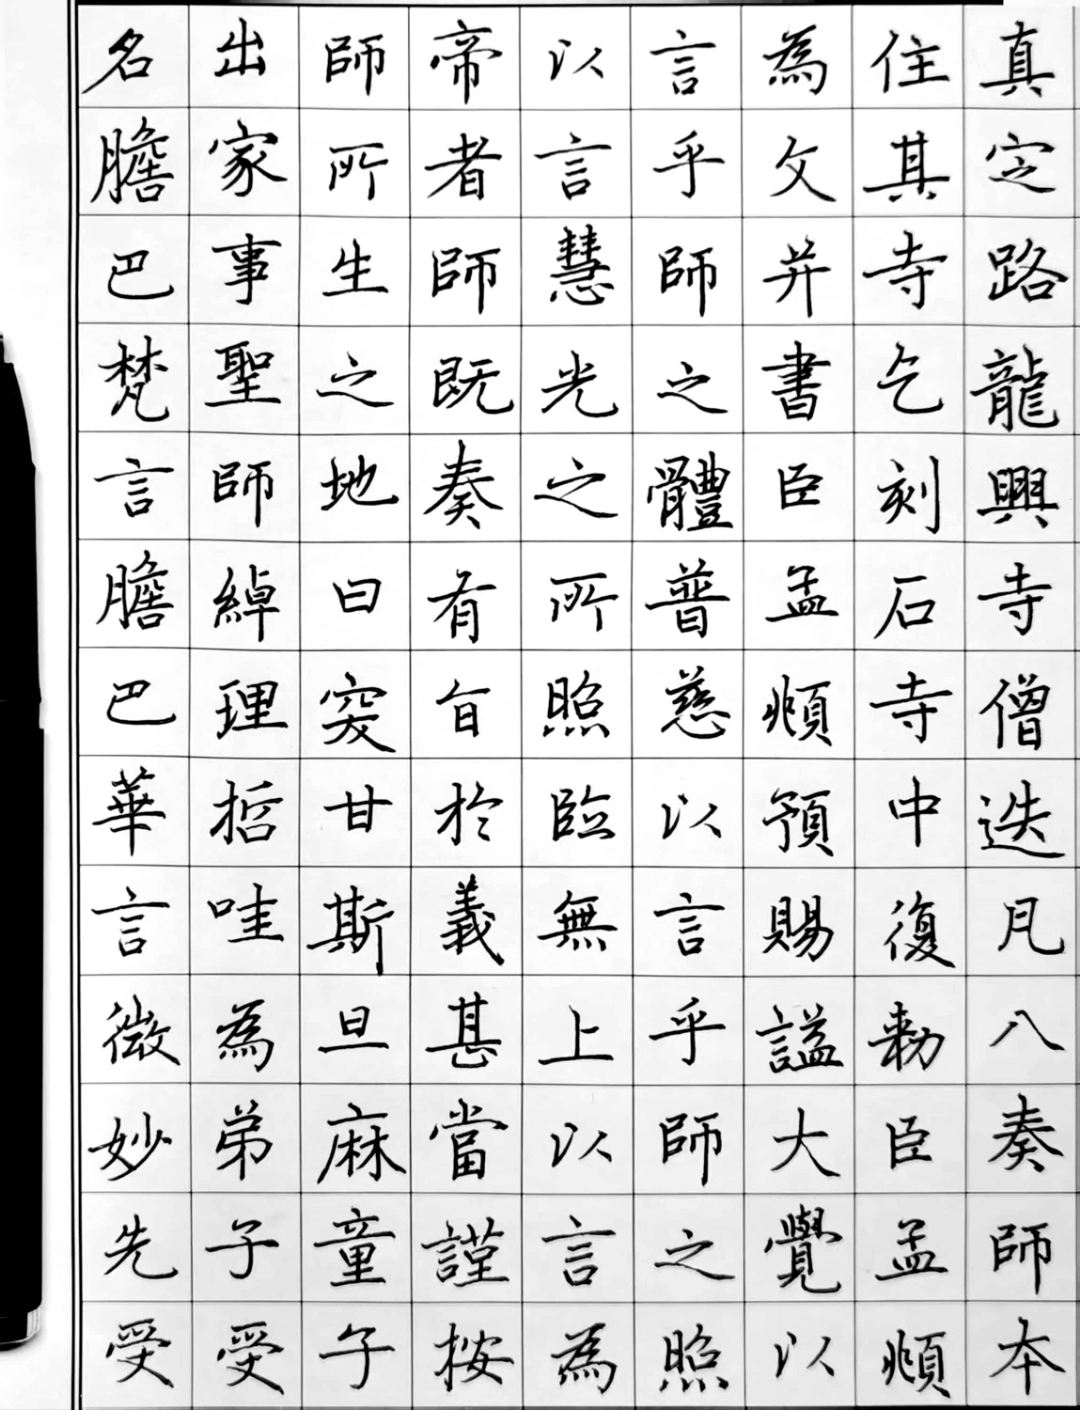 真定路龍興寺僧迭凡八奏師本
住其寺乞刻石寺中復勅臣孟頫
為文并書臣孟頫預賜謚大覺以
言乎師之體普慈以言乎師之照
以言慧光之所照臨無上以言為
帝者師既奏有旨於義甚當謹按
師所生之地曰突甘斯旦麻童子
出家事聖師綽理哲哇為弟子受
名膽巴梵言膽巴華言微妙先受